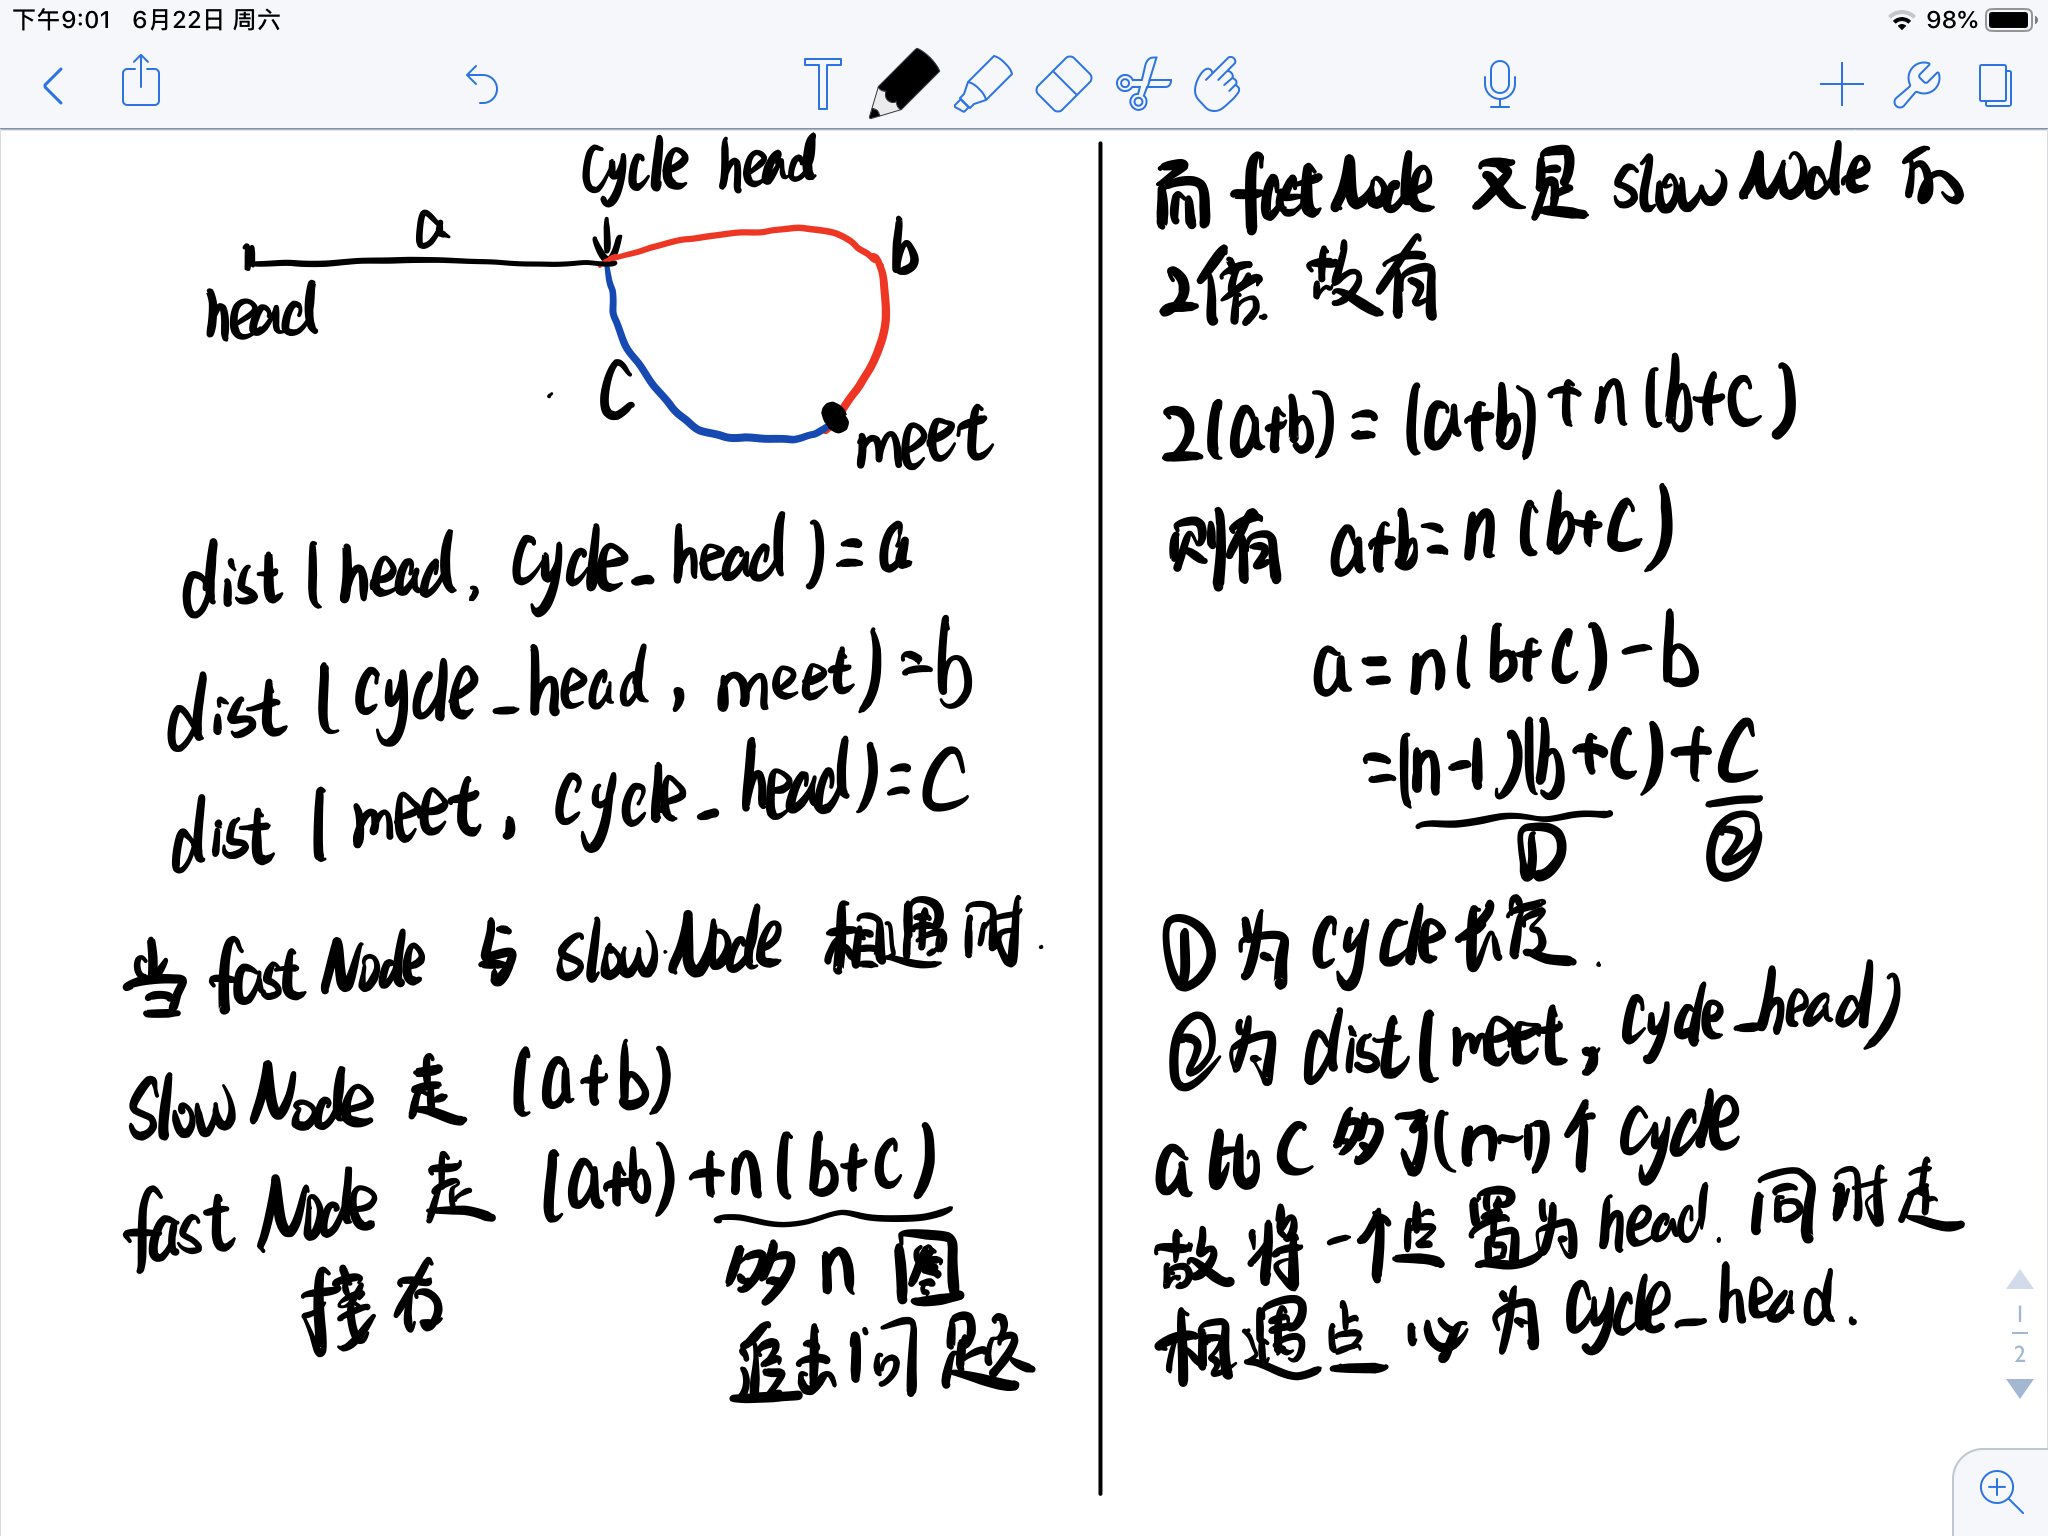 下午9:01 6月22日 周六
98%
T
cycle head
a
b
head
C
meet
dist(head, cycle_head)=a
dist(cycle_head, meet)=b
dist(meet, cycle_head)=C
当fastNode 与 slowNode 相遇时.
slowNode 走 (a+b)
fastNode 走 (a+b)+n(b+c)
接右
多n圈
追击问题
而fastNode 又是 slowNode 的
2倍. 故有
2(a+b)=(a+b)+n(b+c)
则有 a+b=n(b+c)
a=n(b+c)-b
=(n-1)(b+c)+C
①
②
①为cycle长度.
②为dist(meet, cycle_head)
a比C多了(n-1)个cycle
故将一个点置为head. 同时走
相遇点必为cycle_head.
1
2